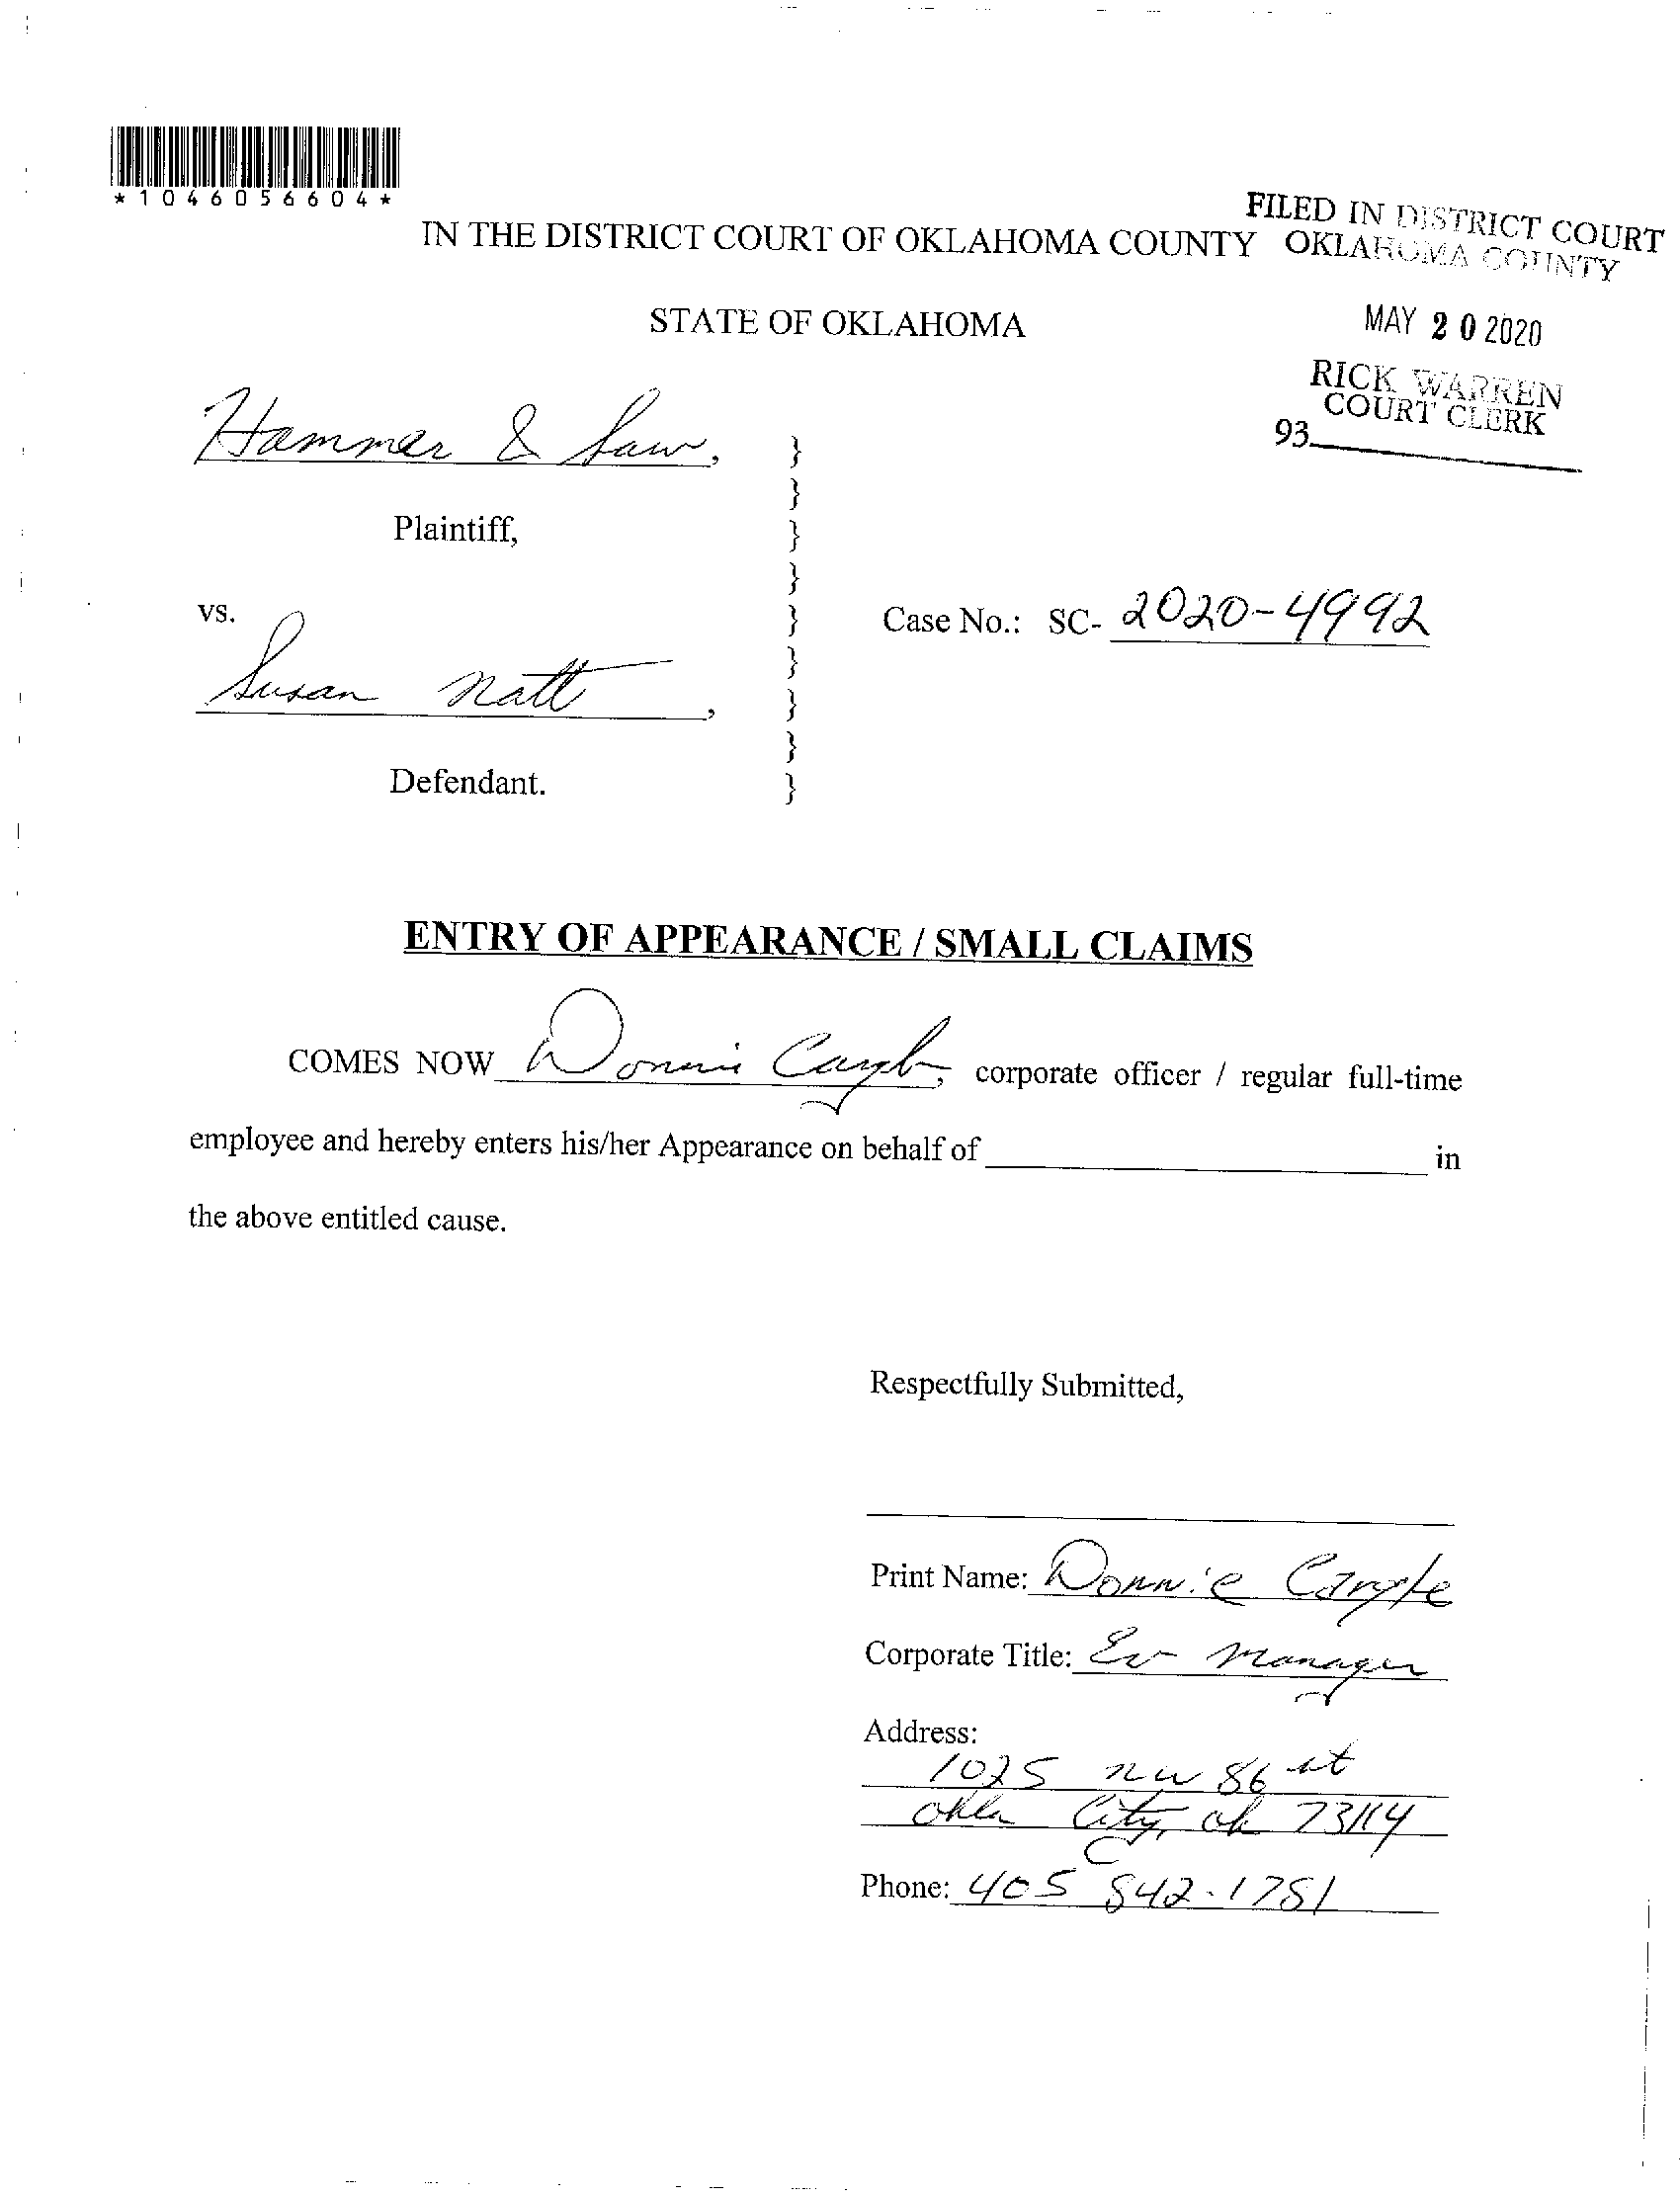 *1046056604*
FILED IN DISTRICT COURT
OKLAHOMA COUNTY
IN THE DISTRICT COURT OF OKLAHOMA COUNTY
STATE OF OKLAHOMA
MAY 20 2020
RICK WARREN
COURT CLERK
93
Hammer & Saw,
}
}
Plaintiff,
}
}
vs.
}
Case No.: SC- 2020-4992
}
Susan Natt,
}
}
Defendant.
}
ENTRY OF APPEARANCE / SMALL CLAIMS
COMES NOW Donnie Cargle, corporate officer / regular full-time
employee and hereby enters his/her Appearance on behalf of in
the above entitled cause.
Respectfully Submitted,
Print Name: Donnie Cargle
Corporate Title: Manager
Address:
1025 nw 86 st
Okla City, ok 73114
Phone: 405 842-1781